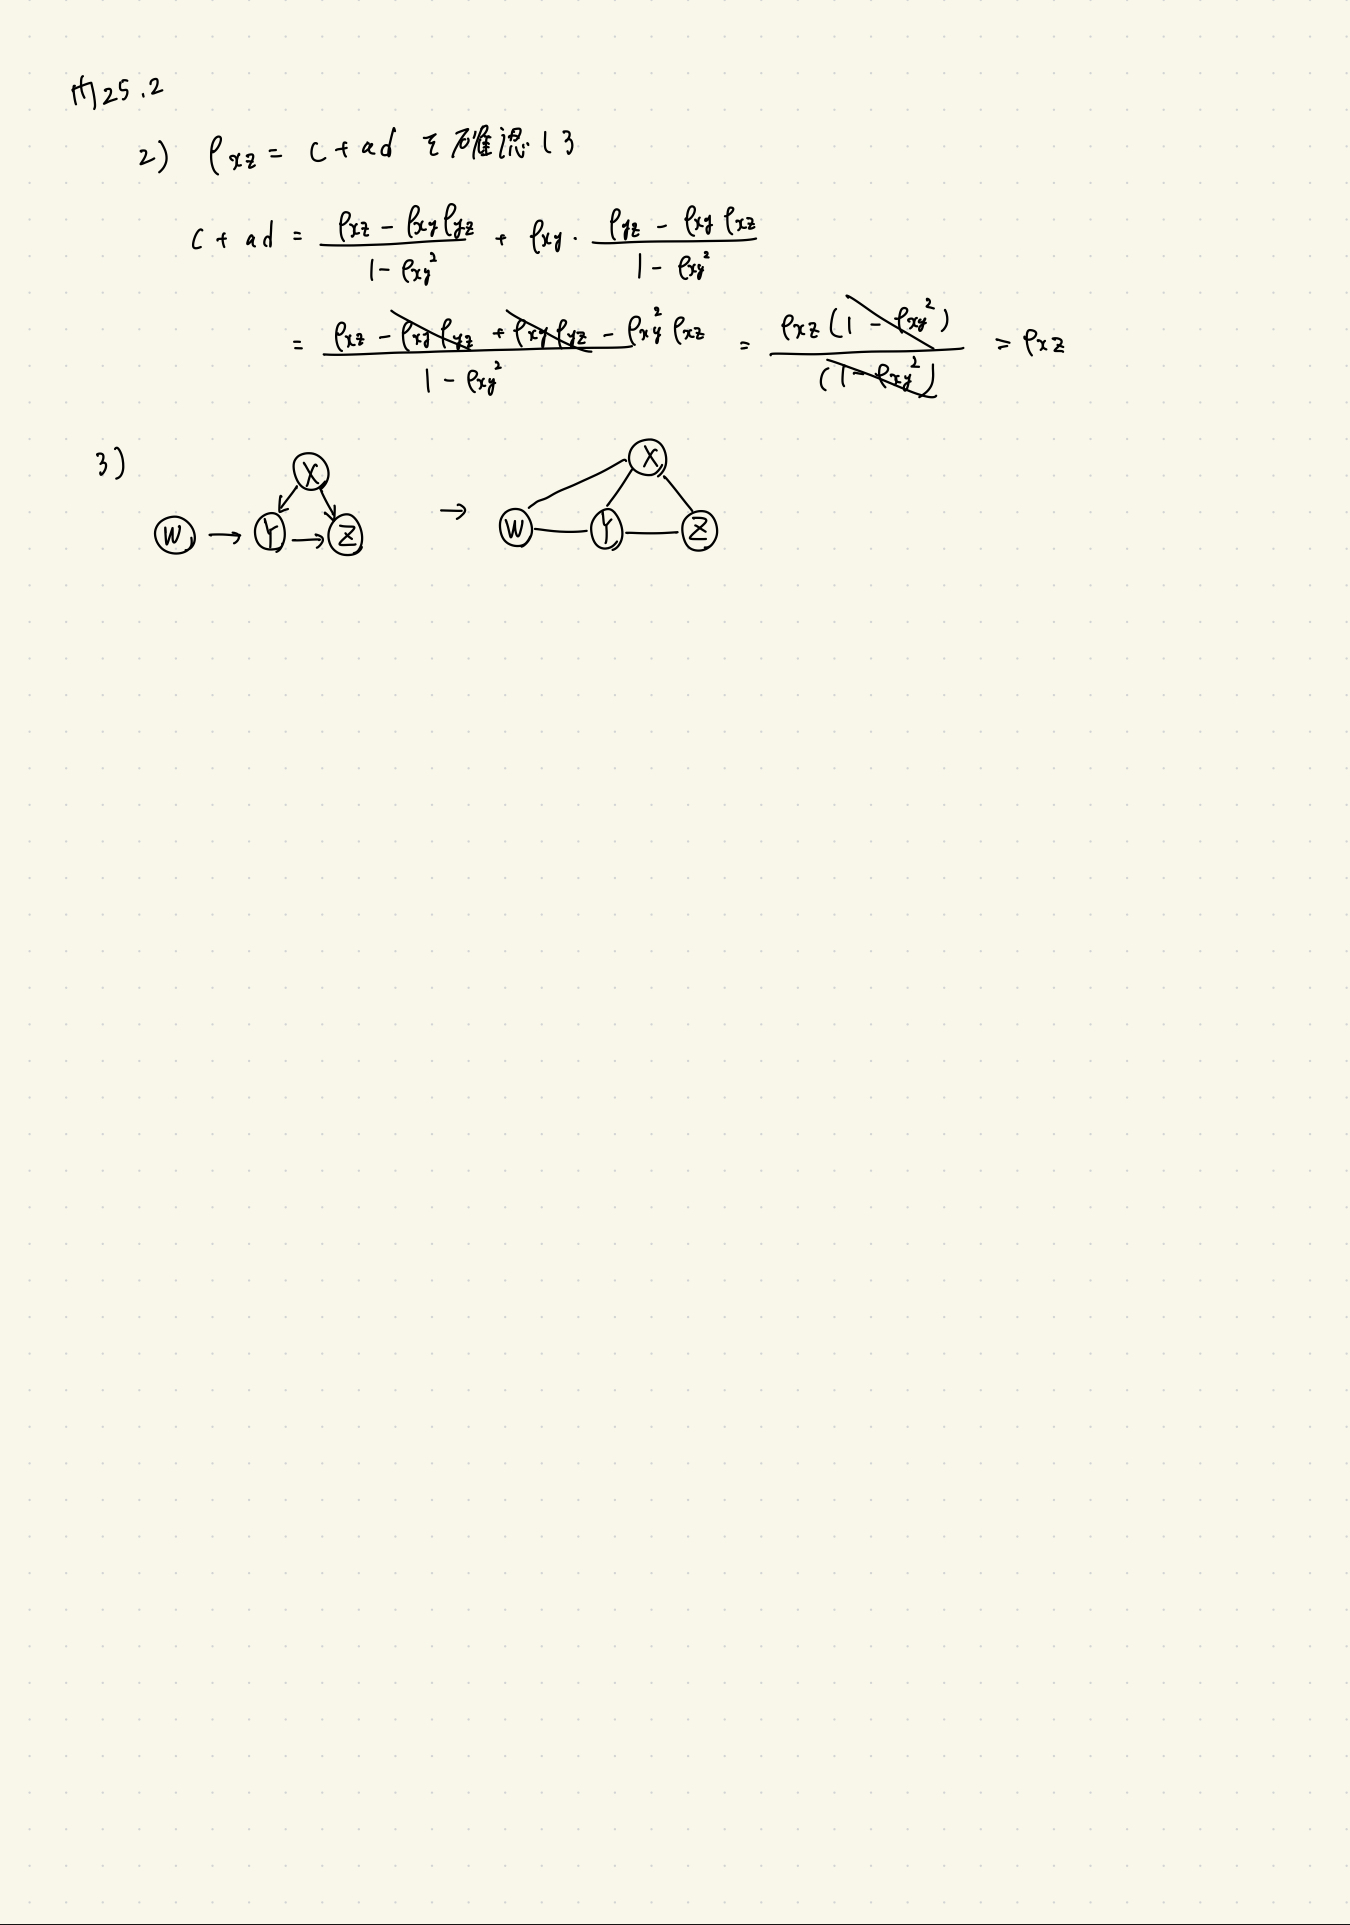 問25.2
2) ρxz = c + ad を確認する
c + ad = (ρxz - ρxy ρyz)/(1 - ρxy²) + ρxy · (ρyz - ρxy ρxz)/(1 - ρxy²)
= (ρxz - ρxy ρyz + ρxy ρyz - ρxy² ρxz)/(1 - ρxy²) = ρxz (1 - ρxy²)/(1 - ρxy²) = ρxz
3)
X
W → Y → Z
→
X
W Y Z